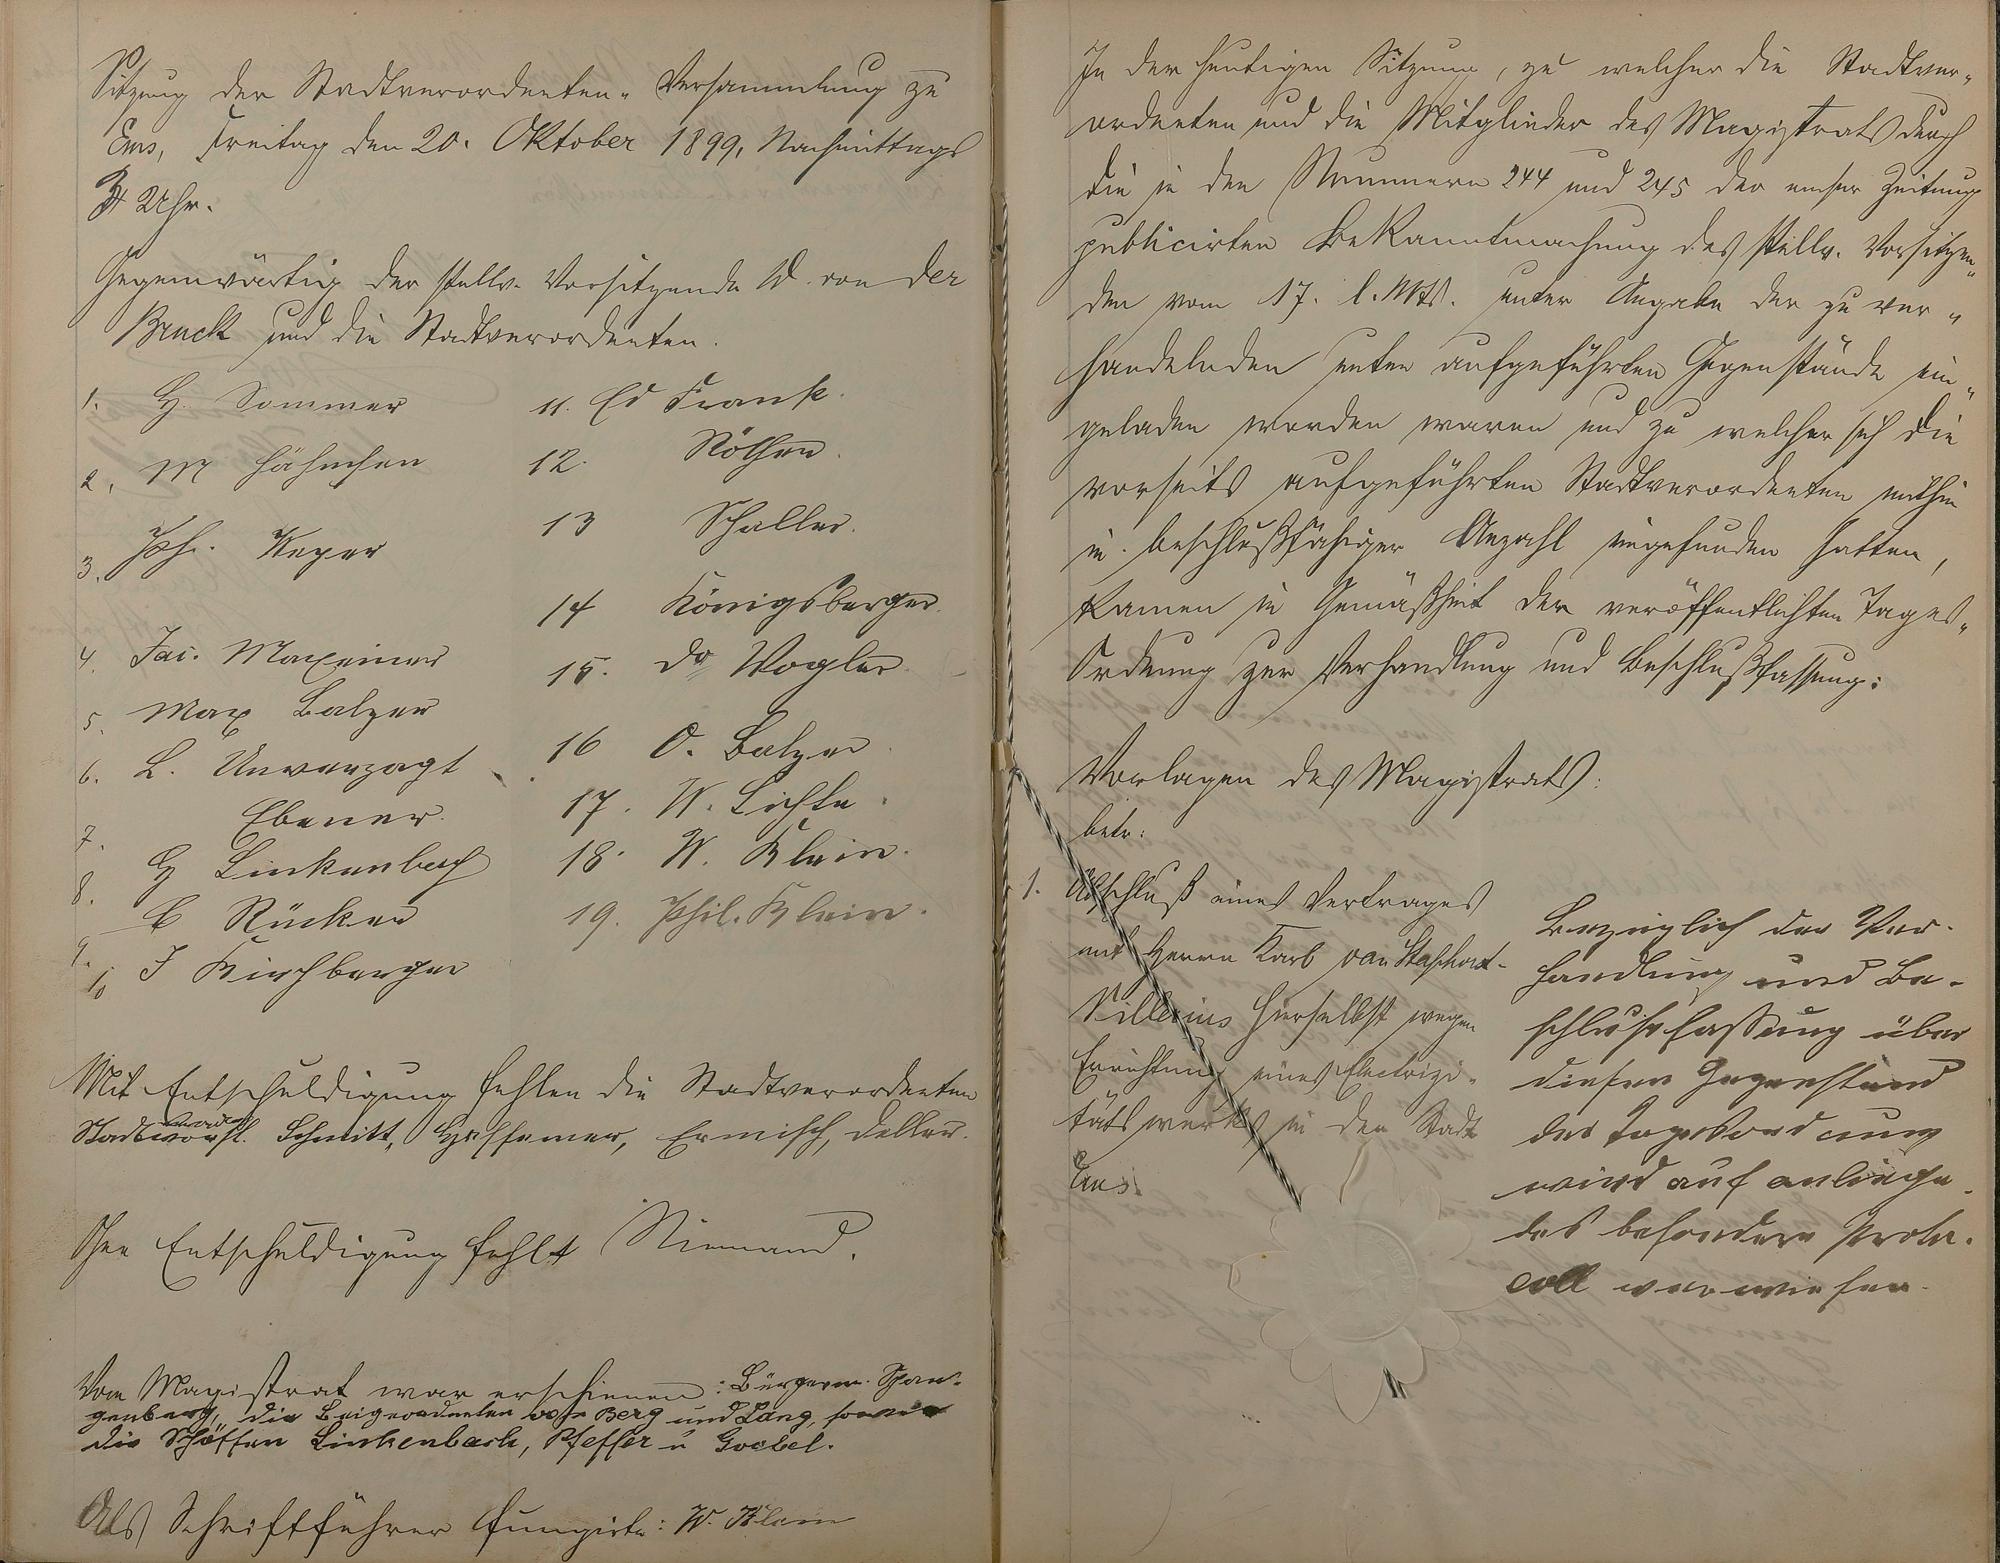 Sitzung der Stadtverordneten-Versammlung zu
Ems, Freitag den 20. Oktober 1899, Nachmittags
Uhr.
Gegenwärtig der stellv. Vorsitzende W. von der
Bruck und die Stadtverordneten.
1. H. Sommer
2. M Hähnchen
3. Ph.
4. Jac. Maxeiner
5. Max Balzer
6. L. Unverzagt
7. Ebener.
8. G Linkenbach
9. C Rücker
10 J Kirchberger
11. Ed Frank.
12. Röthen.
13 Schaller.
14 Königsberger.
15. Dr Vogler.
16 O. Balzer.
17. W. Lichte.
18. W. Klein.
19. Phil. Klein.
Mit Entschuldigung fehlen die Stadtverordneten
Schmitt, Heffemer, Ermisch, Deller.
Ohne Entschuldigung fehlt Niemand.
Vom Magistrat war erschienen: Bürgerm. Span-
genberg, die Beigeordneten von Berg und Lang, sowie
die Schöffen Linkenbach, Pfeffer u Goebel.
Als Schriftführer fungirte: W. Klein
In der heutigen Sitzung, zu welcher die Stadtver-
ordneten und die Mitglieder des Magistrats durch
die in den Nummern 244 und 245 der emser Zeitung
publicirten Bekanntmachung des stellv. Vorsitzen-
den vom 17. l. Mts. unter Angabe der zu ver-
handelnden unten aufgeführten Gegenstände ein-
geladen worden waren und zu welcher sich die
vorseits aufgeführten Stadtverordneten mithin
in beschlußfähiger Anzahl eingefunden hatten,
kamen in Gemäßheit der veröffentlichten Tages-
Ordnung zur Verhandlung und Beschlußfassung:
Vorlagen des Magistrats:
betr:
1. Abschluß eines Vertrages
mit Herrn Karl van
hierselbst wegen
Errichtung eines Electrizi-
tätswerks in der Stadt
Ems.
Bezüglich der Ver-
handlung und Be-
schlußfassung über
diesen Gegenstand
der Tagesordnung
wird auf anliegen-
des besondere Proto-
coll verwiesen.